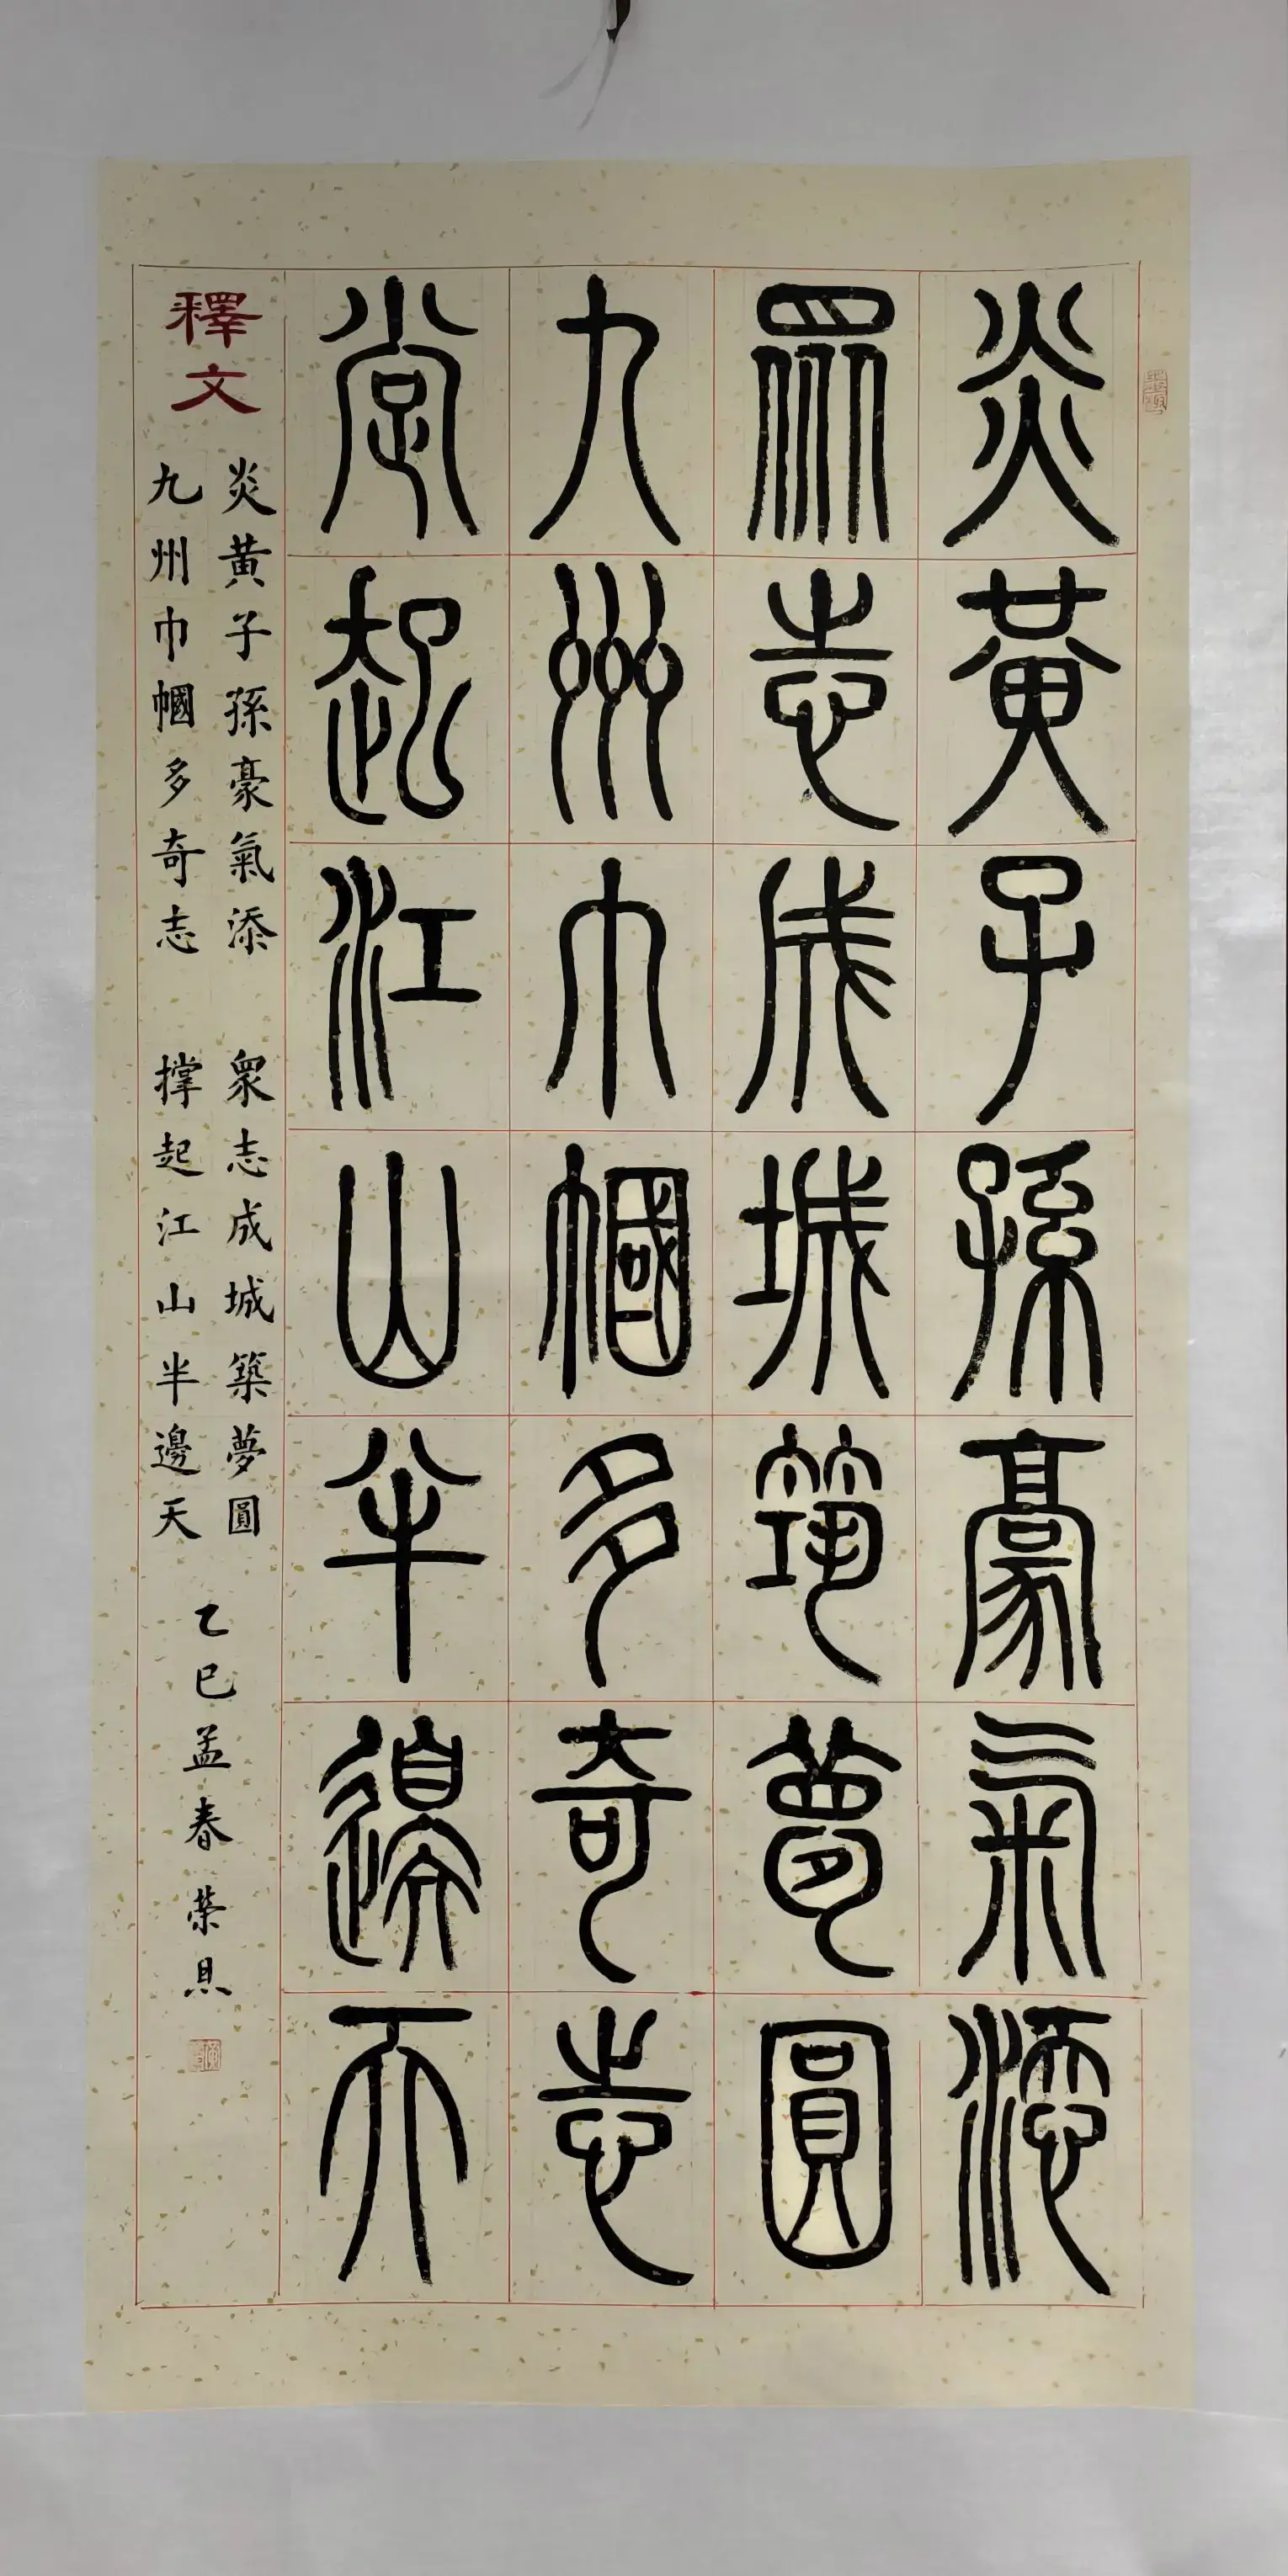 炎黃子孫豪氣添
眾志成城築夢圓
九州巾幗多奇志
掌起江山半邊天
釋文
炎黃子孫豪氣添 眾志成城築夢圓
九州巾幗多奇志 撐起江山半邊天
乙巳孟春榮